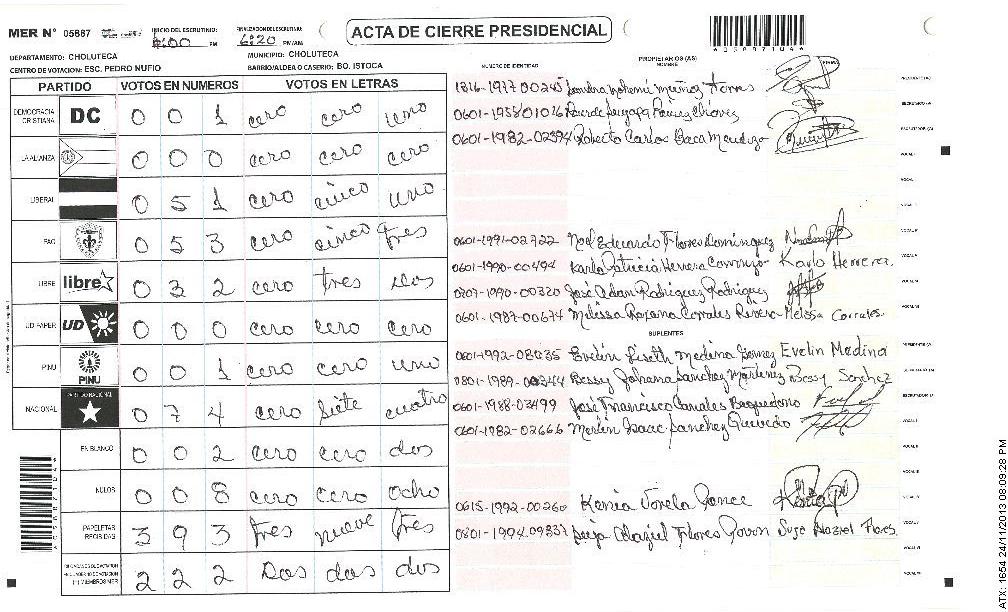 MER N° 05887 INICIO DEL ESCRUTINIO: 6:00 PM FINALIZACION DEL ESCRUTINIO: 6:20 PM/AM ACTA DE CIERRE PRESIDENCIAL
DEPARTAMENTO: CHOLUTECA MUNICIPIO: CHOLUTECA
CENTRO DE VOTACION: ESC. PEDRO NUFIO BARRIO/ALDEA O CASERIO: BO. ISTOCA
PARTIDO VOTOS EN NUMEROS VOTOS EN LETRAS
DEMOCRACIA CRISTIANA DC 0 0 1 cero cero uno
LA ALIANZA 0 0 0 cero cero cero
LIBERAL 0 5 1 cero cinco uno
PAC 0 5 3 cero cinco tres
LIBRE libre 0 3 2 cero tres dos
UD FAPER UD 0 0 0 cero cero cero
PINU PINU 0 0 1 cero cero uno
NACIONAL PARTIDO NACIONAL 0 7 4 cero siete cuatro
EN BLANCO 0 0 2 cero cero dos
NULOS 0 0 8 cero cero ocho
PAPELETAS RECIBIDAS 3 9 3 tres nueve tres
2 2 2 Dos dos dos
NUMERO DE IDENTIDAD PROPIETARIOS (AS) NOMBRE FIRMA
1816-1977-00245 Sandra Nohemi Muñoz Torres
0601-1958-01026 Chávez
0601-1982-02394 Roberto Carlos Baca Mendoza
0601-1991-02722 Noel Eduardo Flores Dominguez
0601-1990-00494 Karla Patricia Herrera Karla Herrera
0207-1990-00320 José Adan Rodriguez Rodriguez
0601-1987-00674 Melissa Roxana Corrales Rivera Melissa Corrales
SUPLENTES
0601-1992-08035 Evelin Liseth Medina Gomez Evelin Medina
0801-1989-00344 Bessy Johana Sanchez Martinez Bessy Sanchez
0601-1988-03499 José Francisco Canales Baquedano
0601-1982-02666 Merlin Isaac Sanchez Quevedo
0615-1992-00260 Kenia Varela Ponce
0801-1994-09837 Flores Flores
ATX: 1654 24/11/2013 08:09:28 PM